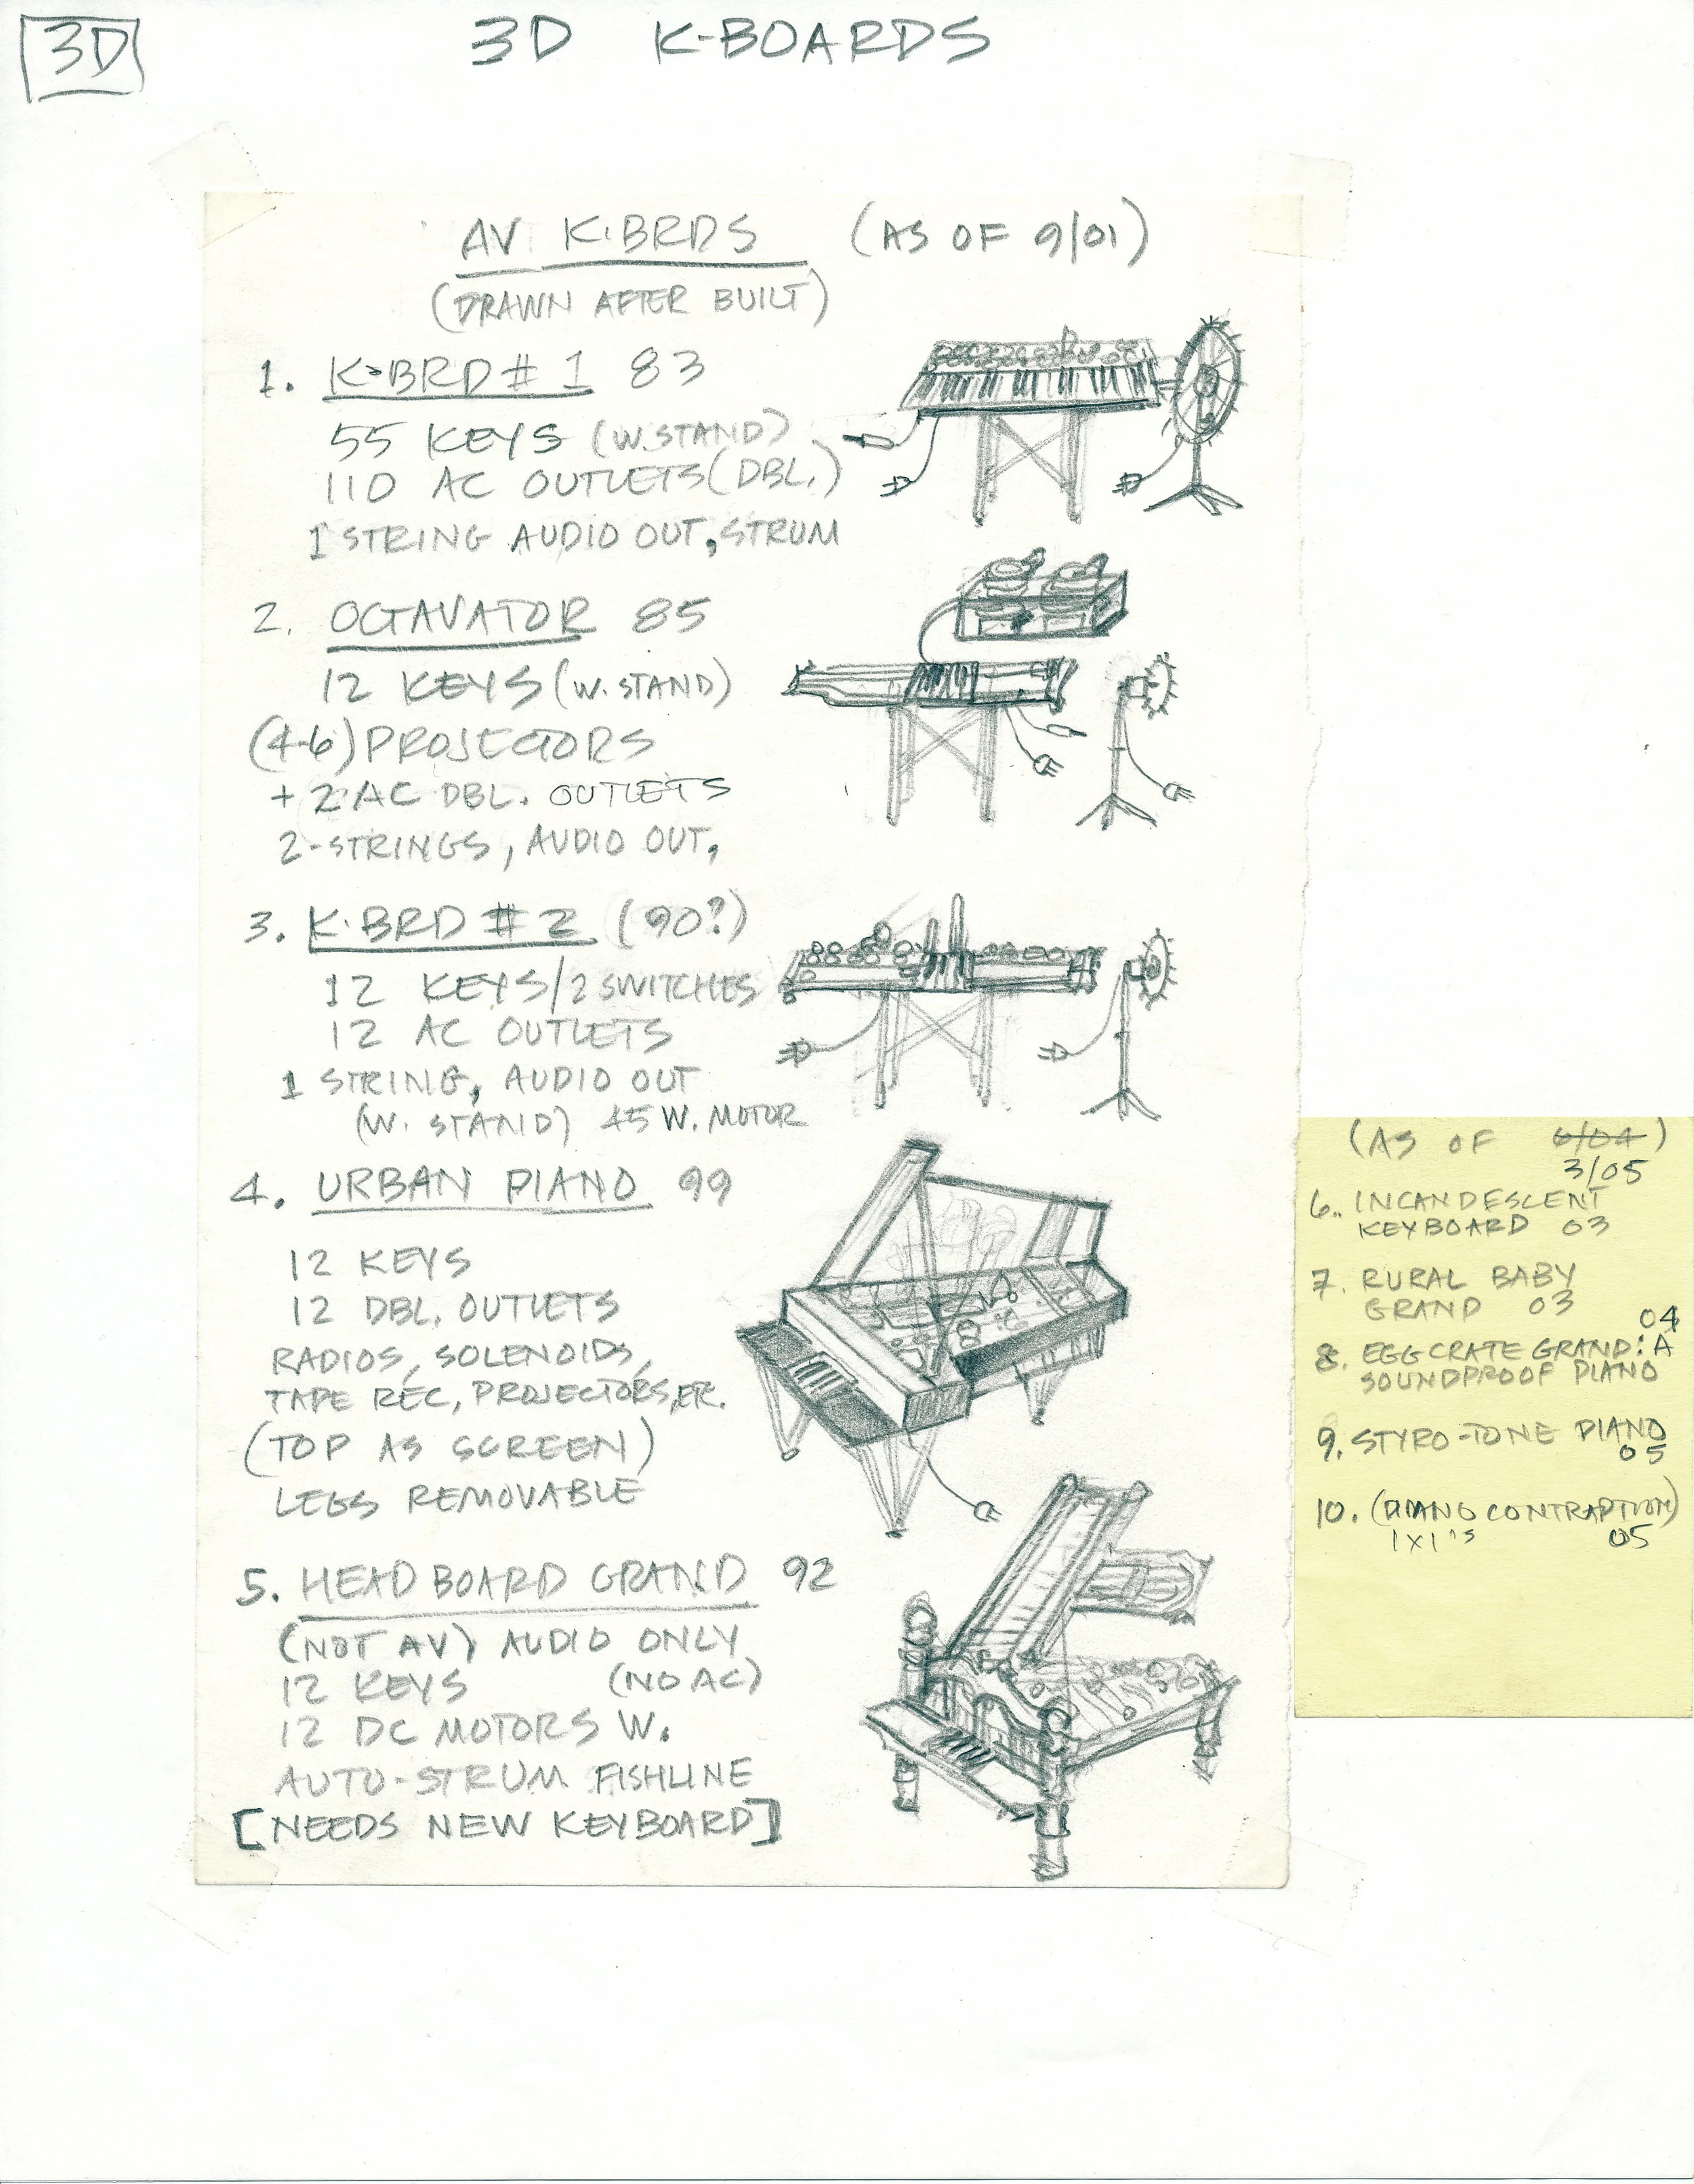 3D
3D K-BOARDS
AV K·BRDS (AS OF 9/01)
(DRAWN AFTER BUILT)
1. K-BRD # 1 83
55 KEYS (W. STAND)
110 AC OUTLETS (DBL.)
1 STRING AUDIO OUT, STRUM
2. OCTAVATOR 85
12 KEYS (W. STAND)
(4-6) PROJECTORS
+ 2 AC DBL. OUTLETS
2-STRINGS, AUDIO OUT,
3. K·BRD # 2 (90?)
12 KEYS/2 SWITCHES
12 AC OUTLETS
1 STRING, AUDIO OUT
(W. STAND) 45 W. MOTOR
4. URBAN PIANO 99
12 KEYS
12 DBL. OUTLETS
RADIOS, SOLENOIDS,
TAPE REC, PROJECTORS, ETC.
(TOP AS SCREEN)
LEGS REMOVABLE
5. HEADBOARD GRAND 92
(NOT AV) AUDIO ONLY
12 KEYS (NO AC)
12 DC MOTORS W.
AUTO-STRUM FISHLINE
[NEEDS NEW KEYBOARD]
(AS OF 6/04)
3/05
6. INCANDESCENT
KEYBOARD 03
7. RURAL BABY
GRAND 03
04
8. EGGCRATE GRAND: A
SOUNDPROOF PIANO
9. STYRO-TONE PIANO
05
10. (PIANO CONTRAPTION)
1X1'S 05